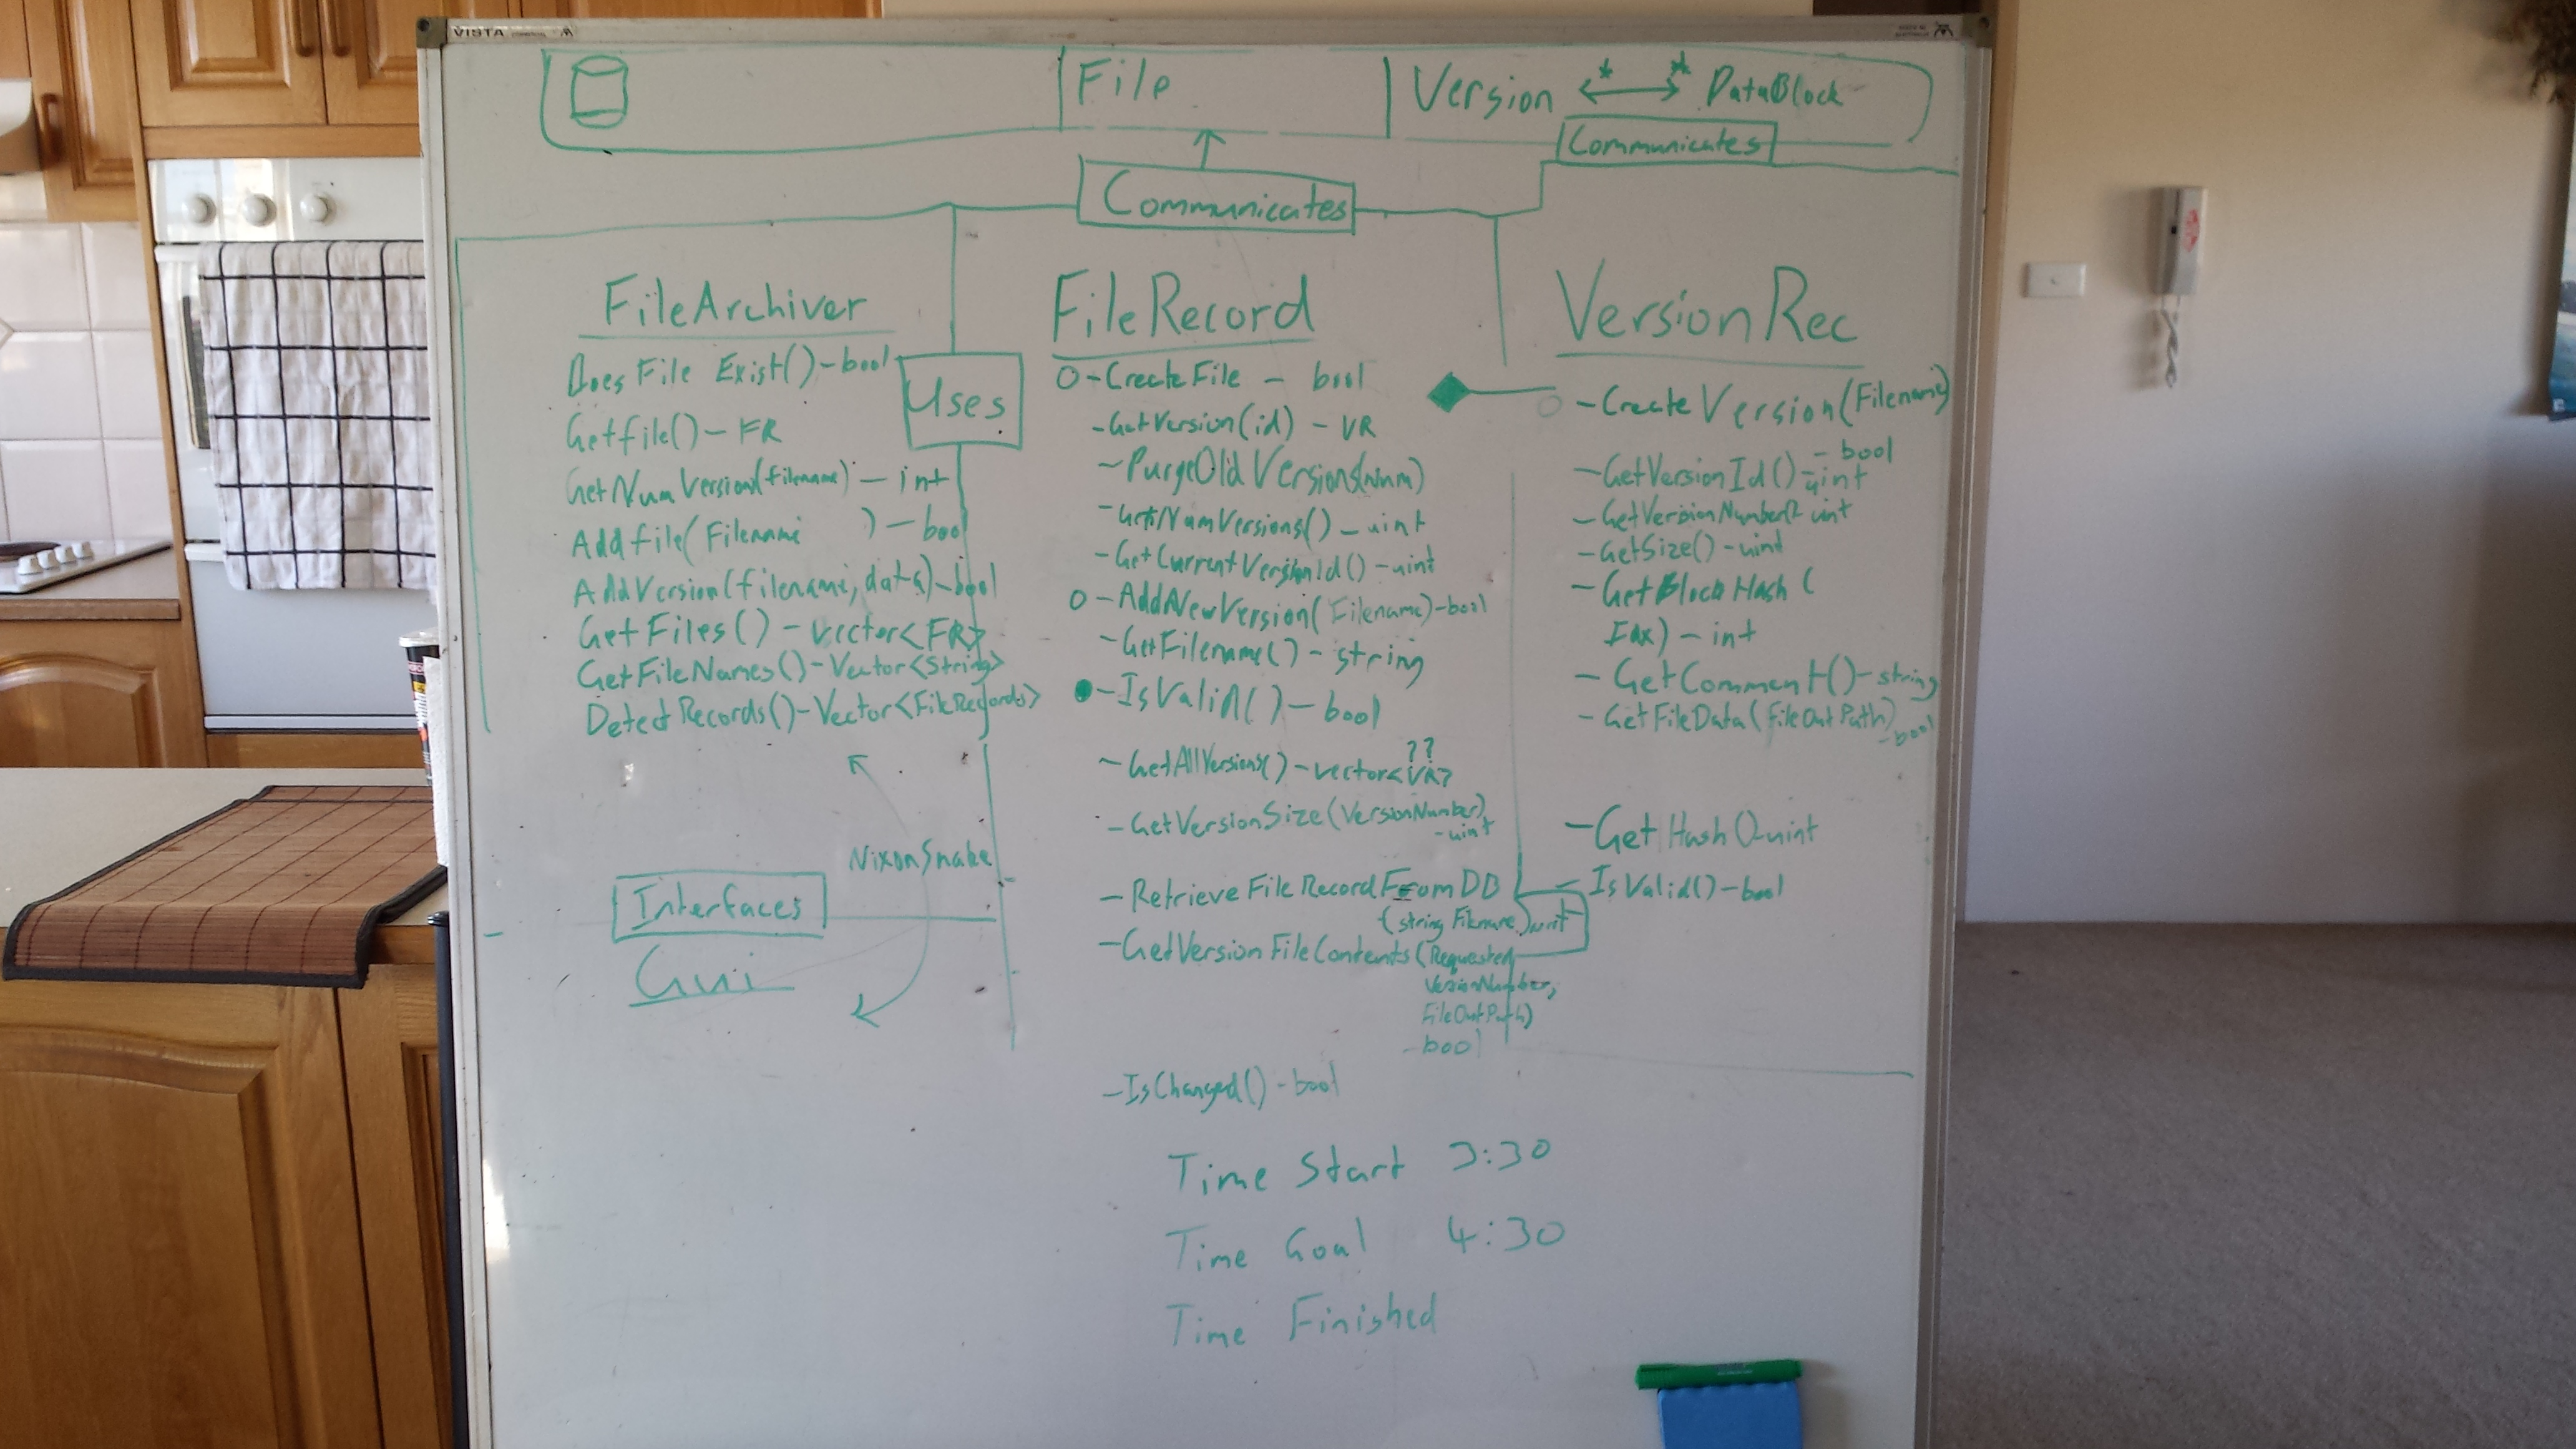 VISTA
File
Version * * DataBlock
Communicates
Communicates
FileArchiver
Does File Exist()-bool
Getfile()-FR
GetNumVersion(filename) - int
Addfile(Filename ) - bool
AddVersion(filename, data)-bool
GetFiles() - vector<FR>
GetFileNames()-Vector<String>
DetectRecords()-Vector<FileRecords>
Uses
NixonSnake
Interfaces
Gui
FileRecord
O-CreateFile - bool
-GetVersion(id) - VR
-PurgeOldVersions(num)
-GetNumVersions() - uint
-GetCurrentVersionId() - uint
O-AddNewVersion(Filename)-bool
-GetFilename() - string
-IsValid() - bool
??
-GetAllVersions() - vector<VR>
-GetVersionSize(VersionNumber)
-uint
-Retrieve File Record From DB
(string Filename) uint
-GetVersion FileContents (Requested
VersionNumber,
FileOutPath)
-bool
-IsChanged() - bool
VersionRec
O -CreateVersion(Filename)
-bool
-GetVersionId()-uint
-GetVersionNumber()-uint
-GetSize()-uint
-GetBlockHash(
Idx) - int
-GetComment()-string
-GetFileData(fileOutPath)
-bool
-GetHash()-uint
-IsValid()-bool
Time Start 3:30
Time Goal 4:30
Time Finished